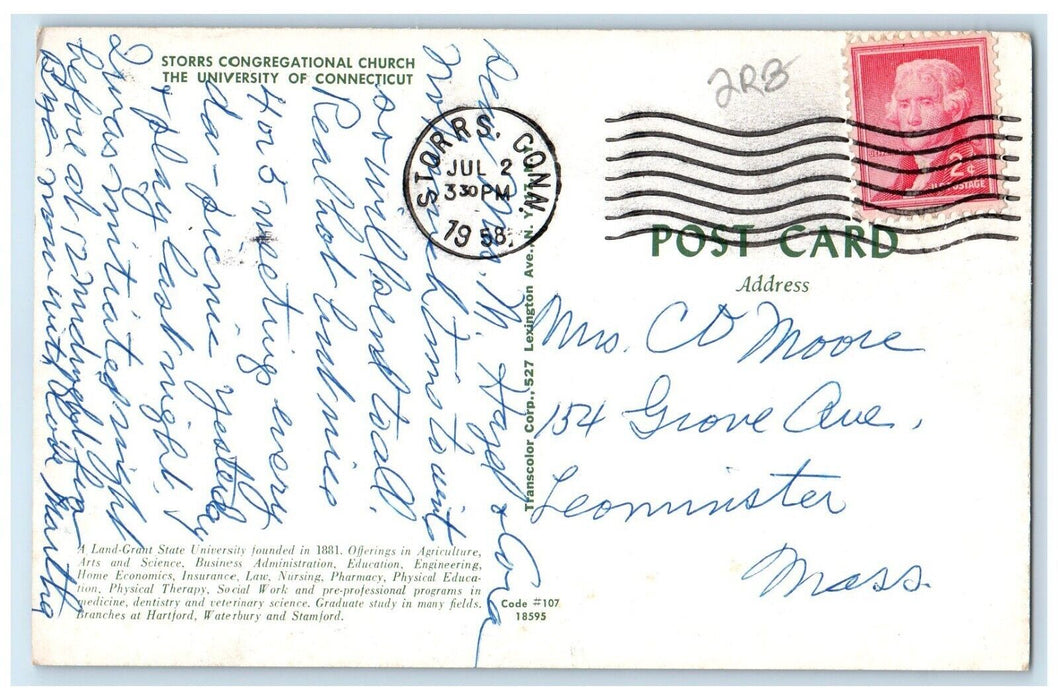 STORRS CONGREGATIONAL CHURCH
THE UNIVERSITY OF CONNECTICUT
Dear Mrs. M. Hazel & Cora
Not much time to write
so will send to all.
Real hot humid
4 or 5 meetings every
day - picnic yesterday
& play last night.
I was initiated night
before at 12 midnight
Love Martha
A Land-Grant State University founded in 1881. Offerings in Agriculture,
Arts and Science, Business Administration, Education, Engineering,
Home Economics, Insurance, Law, Nursing, Pharmacy, Physical Educa-
tion, Physical Therapy, Social Work and pre-professional programs in
medicine, dentistry and veterinary science. Graduate study in many fields.
Branches at Hartford, Waterbury and Stamford.
Code #107
18595
Transcolor Corp., 527 Lexington Ave., N.Y.
STORRS, CONN.
JUL 2
3 30 PM
1958
2RB
2¢
U.S. POSTAGE
POST CARD
Address
Mrs. C D Moore
154 Grove Ave.
Leominster
Mass.